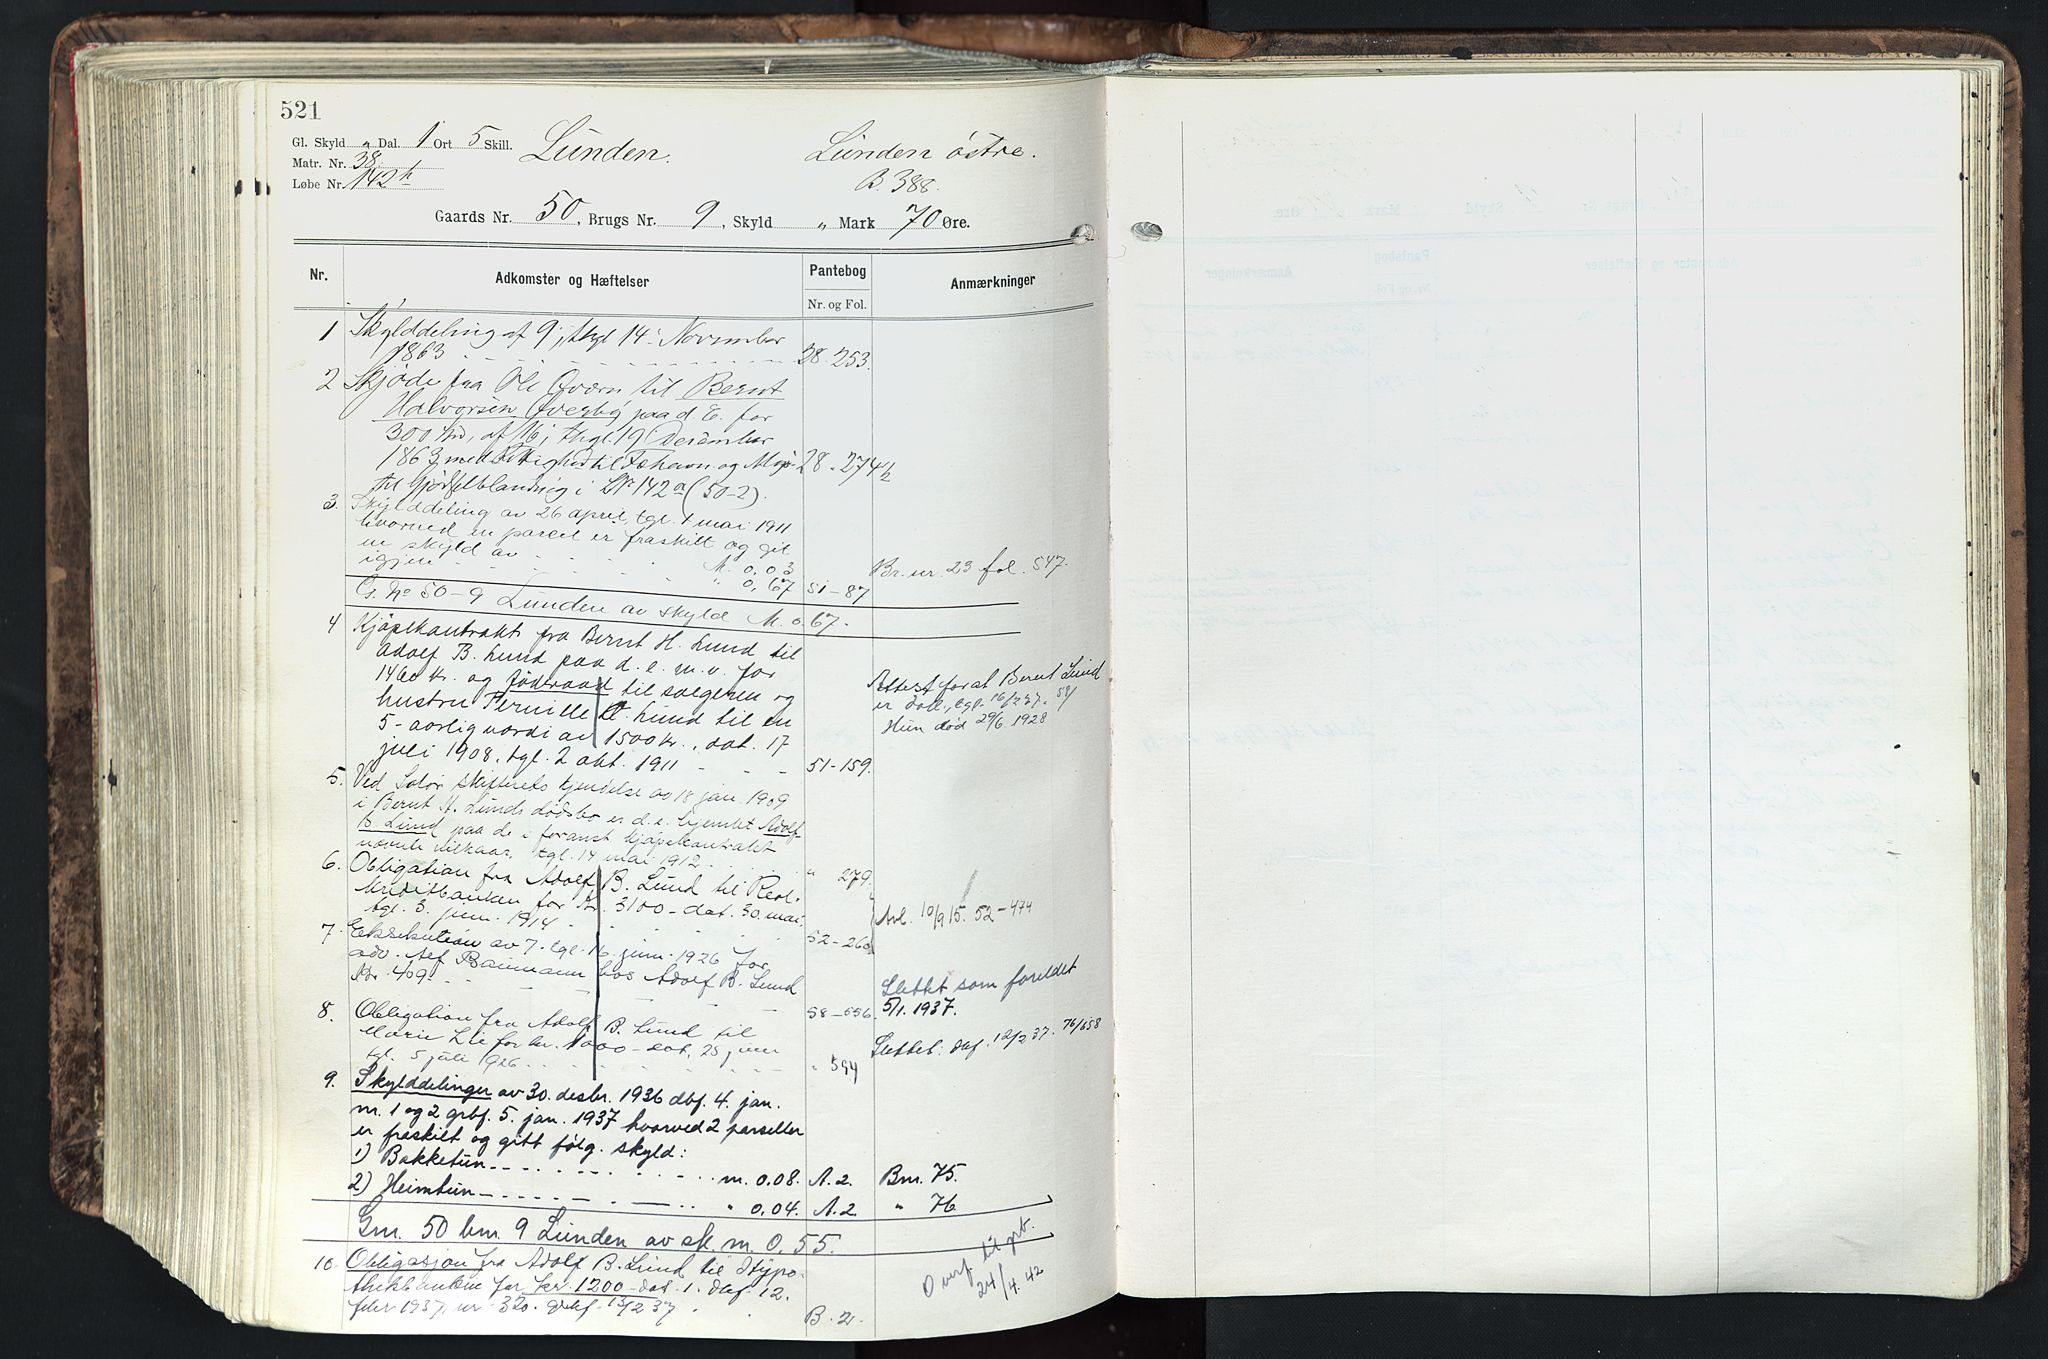 521
Gl. Skyld „ Dal. 1 Ort 5 Skill. Lunden. Lunden østre.
Matr. Nr. 38.
Løbe Nr. 142h B. 388.
Gaards Nr. 50, Brugs Nr. 9, Skyld „ Mark 70 Øre.
Nr. Adkomster og Hæftelser Pantebog Anmærkninger
Nr. og Fol.
1 Skylddeling af 9, thgl 14 November
1863 28-253.
2 Skjøde fra Ole Qværn til Bernt
Halvorsen Øverby paa d. E. for
300 Spd, af 16, thgl. 19 December
1863 med Rettighed til Fæhavn og
til Gjødselblanding i LNr 142a (50-2). 28-274b
3. Skylddeling av 26 april, tgl. 1 mai 1911
hvorved en parcel er fraskilt og git
en skyld av M. 0,03 Br. nr. 23 fol. 547.
igjen „ 0,67 51-87
G. No 50-9 Lunden av skyld M. 0.67.
4 Kjøpekontrakt fra Bernt H. Lund til
Adolf B. Lund paa d. e. m. v. for
1460 kr. og føderaad til sælgeren og Attest for at Bernt Lund
hustru Pernille Lund til en er død, tgl. 16/2 27. 58/
5-aarlig værdi av 1500 kr., dat. 17 Hun død 29/6 1928
juli 1908, tgl. 2 okt. 1911 51-159.
5. Ved Solør skifterets kjendelse av 18 jan. 1909
i Bernt H. Lunds dødsbo er d. e. hjemlet Adolf
B. Lund paa de i foranst kjøpekontrakt
nævnte vilkaar, tgl. 14 mai 1912. „ 279.
6. Obligation fra Adolf B. Lund til Real-
kreditbanken for kr. 3100- dat. 30. mai,
tgl. 3. juni 1914 52-260 Avl. 10/9 15. 52-474
7. Eksekution av 7. tgl. 16. juni 1926 for
adv. Alf Baumann hos Adolf B. Lund
Kr. 409. 58-556. Slettet som foreldet
5/1. 1937.
8. Obligation fra Adolf B. Lund til
Marie Lie for kr. 1000- dat. 25 juni
tgl. 5 juli 1926 „ 594 Slettet: dbf. 12/2 37. 76/658
9. Skylddelinger av 30. desbr. 1936 dbf. 4. jan.
nr. 1 og 2 grbf. 5. jan. 1937 hvorved 2 parseller
er fraskilt og gitt følg. skyld:
1) Bakketun m. 0.08. A. 2. Bnr. 75.
2) Heimtun „ 0.04. A. 2. „ 76
Gnr. 50 bnr. 9 Lunden av sk. m. 0.55.
10. Obligasjon fra Adolf B. Lund til Hypo-
thekbanken for kr. 1200- dat. 1. dbf. 12.
febr 1937, nr. 320. grbf. 13/2 37 B. 2.
Overf. til grb.
24/4. 42